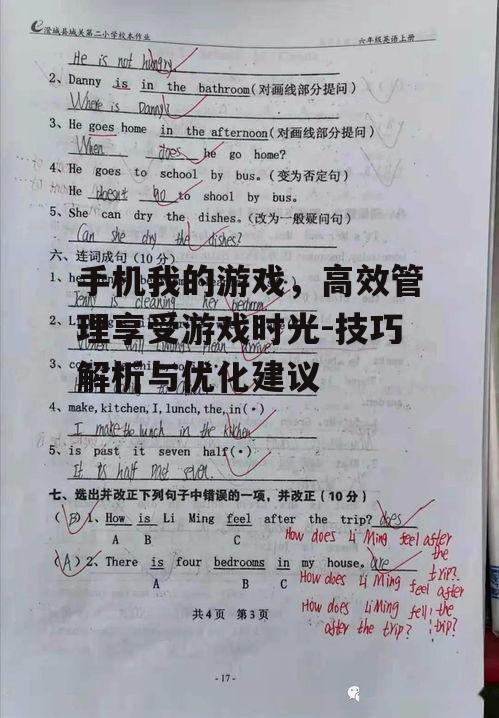 澄城县城关第二小学校本作业 六年级英语上册
He is not hungry
2、Danny is in the bathroom(对画线部分提问)
Where is Danny?
3、He goes home in the afternoon(对画线部分提问)
When does he go home?
4、He goes to school by bus.(变为否定句)
He doesn't go to shool by bus.
5、She can dry the dishes.(改为一般疑问句)
Can she dry the dishes?
六、连词成句(10分)
手机我的游戏，高效管
理享受游戏时光-技巧
解析与优化建议
1、
Jenny is cleaning her bedroom
2、
3、
4、make,kitchen,I,lunch,the,in(•)
I make the lunch in the kitchen
5、is past it seven half(•)
It is half past seven.
七、选出并改正下列句子中错误的一项，并改正(10分)
(B)1、How is Li Ming feel after the trip? does
A B C
How does Li Ming feel after the trip?
(A)2、There is four bedrooms in my house. are
A B C
How does Li Ming feel after the trip?
How does Li Ming fell after the trip?
共4页 第3页
- 17 -